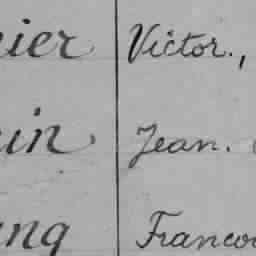 ier Victor.,
in Jean.
ng Franco